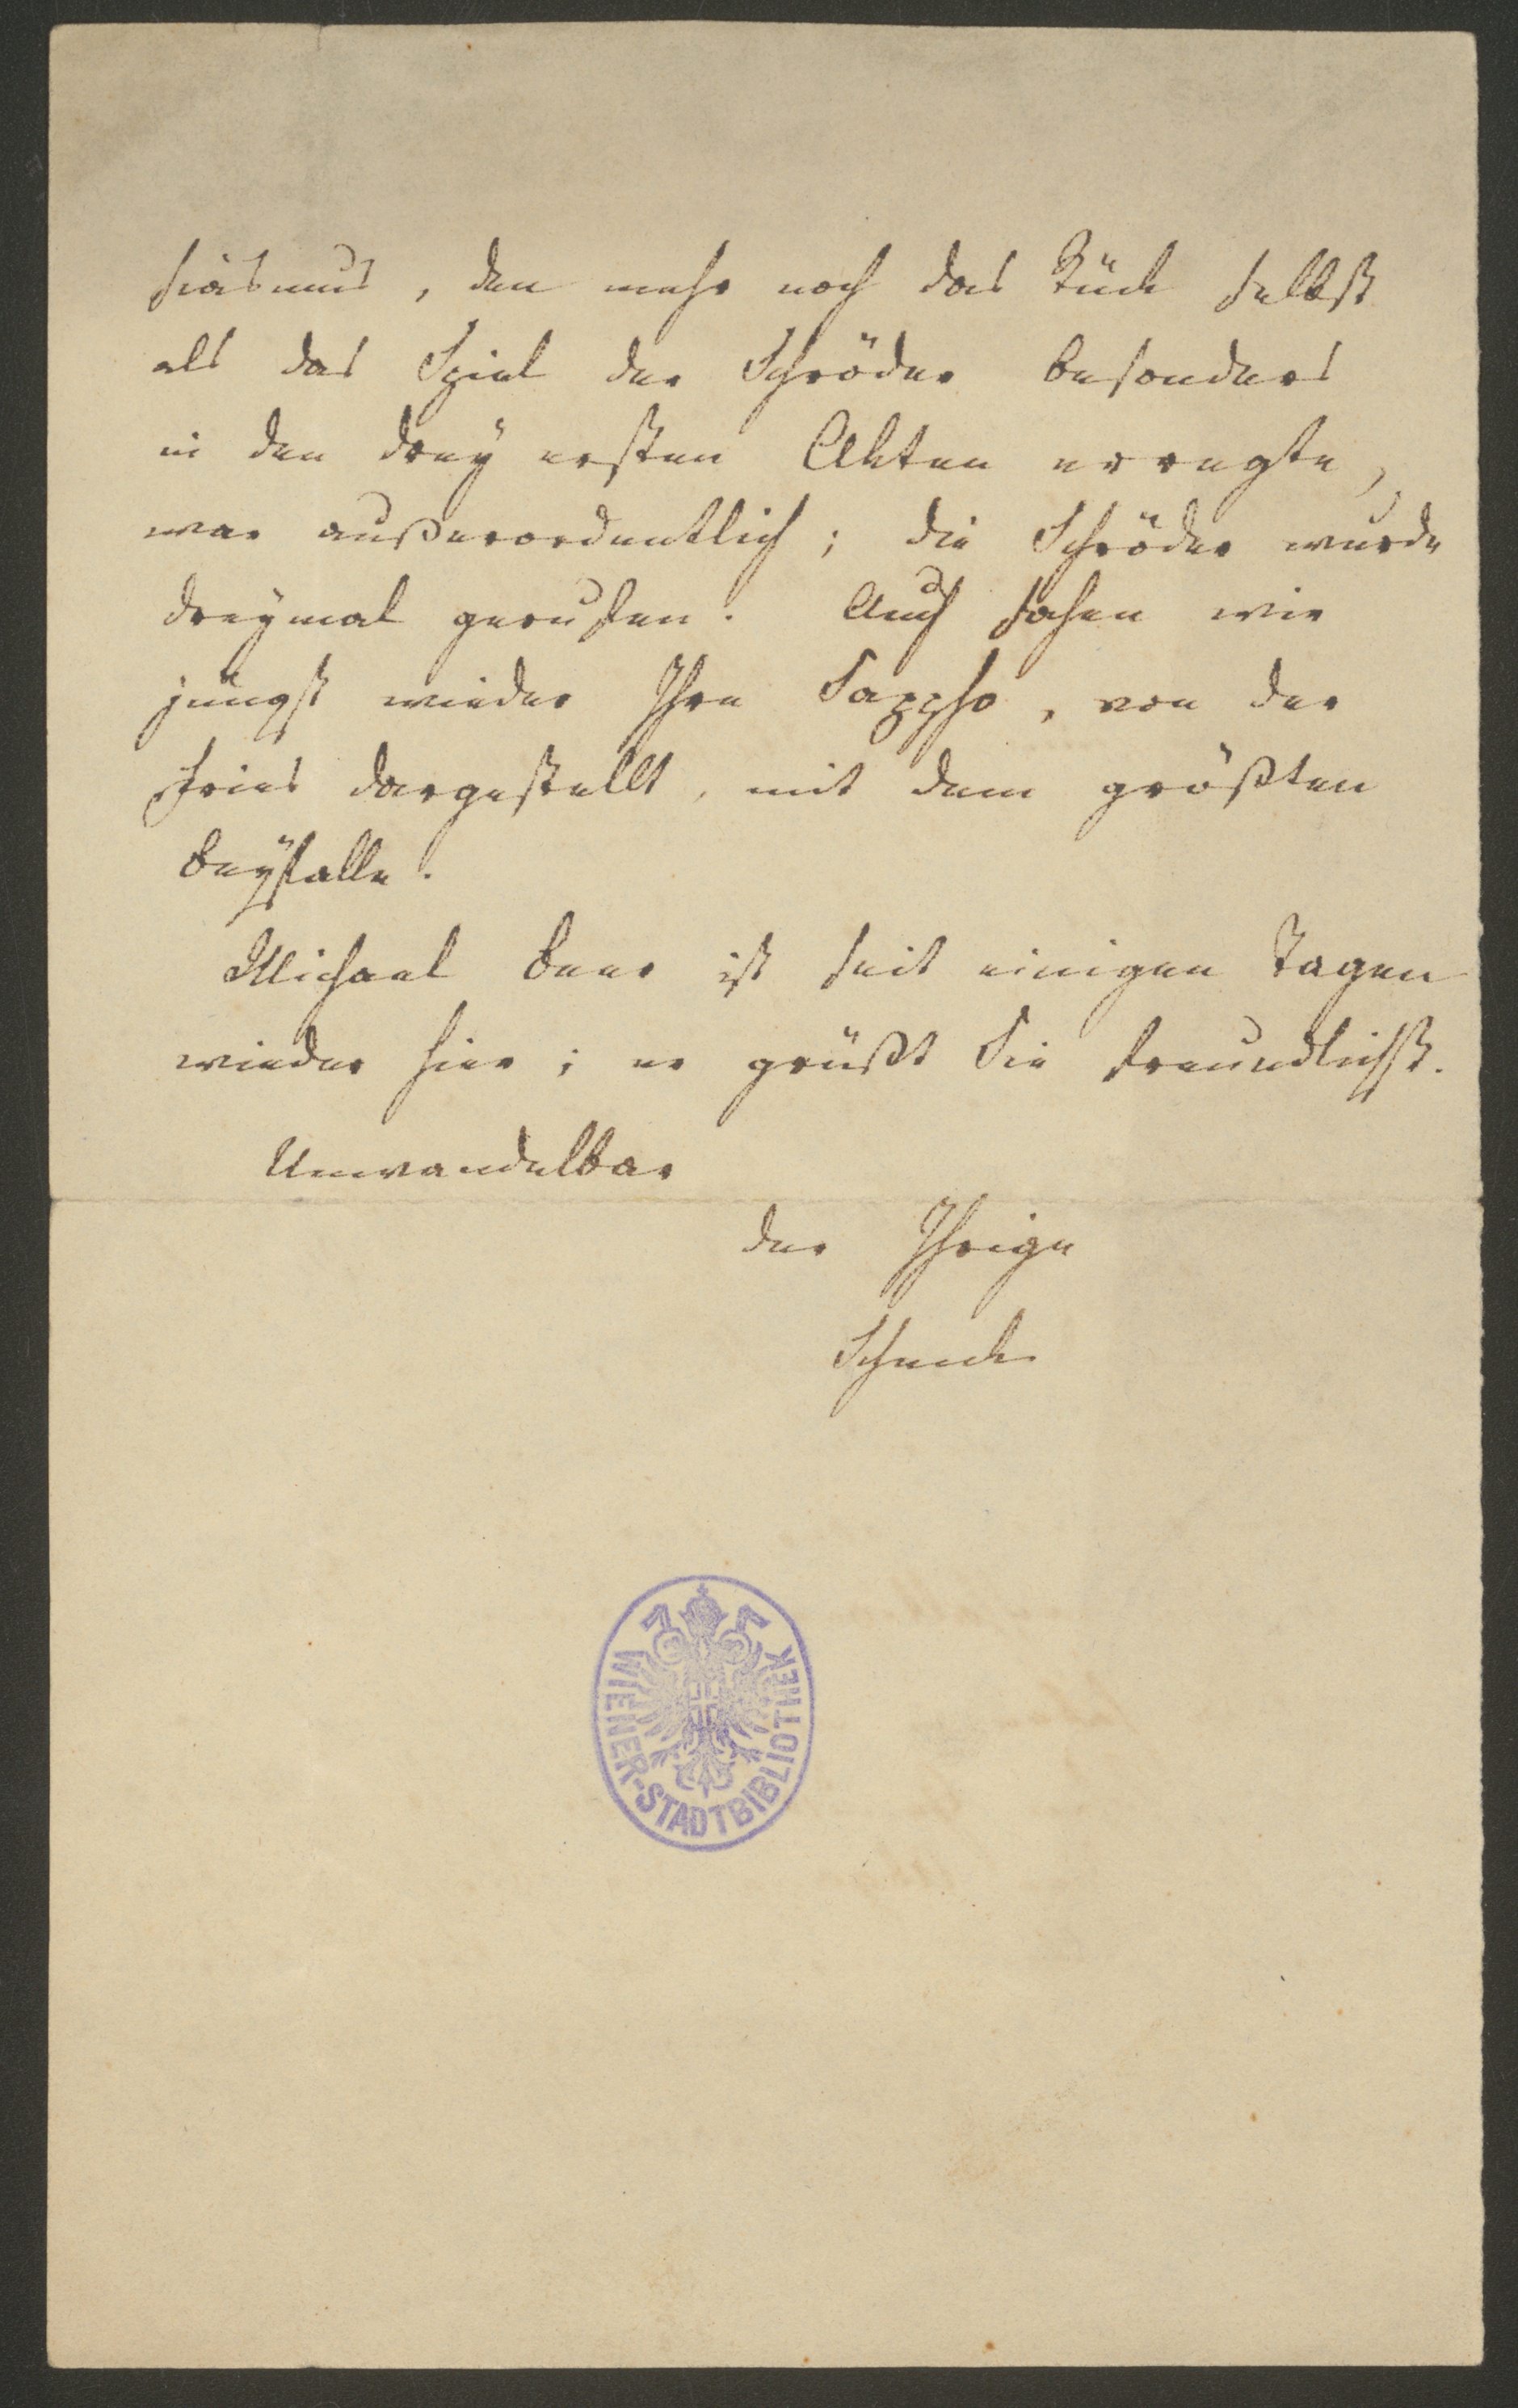 siasmus, den mehr noch das Stück selbst
als das Spiel der Schröder besonders
in den drey ersten Akten erregte,
war außerordentlich; die Schröder wurde
dreymal gerufen. Auch sahen wir
jüngst wieder Ihre Sappho, von der
Fries dargestellt, mit dem größten
Beyfalle.
Michael Beer ist seit einigen Tagen
wieder hier; er grüßt Sie freundlichst.
Unwandelbar
der Ihrige
Schenk
WIENER-STADTBIBLIOTHEK